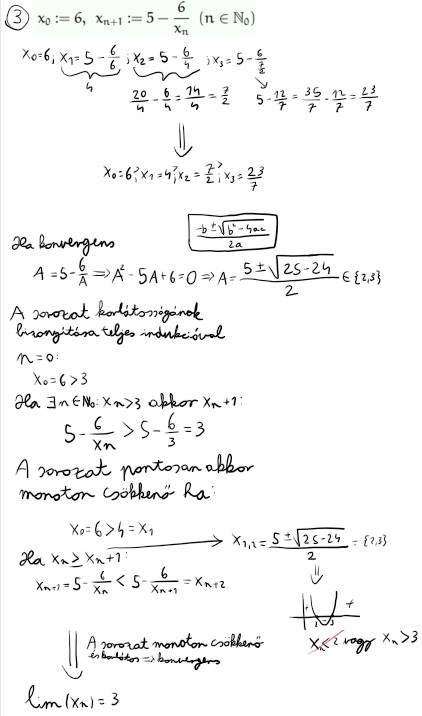 ③ x₀ := 6, xₙ₊₁ := 5 − 6/xₙ (n ∈ ℕ₀)
x₀=6; x₁=5−6/6; x₂=5−6/4; x₃=5−6/(7/2)
4
20/4−6/4=14/4=7/2 5−12/7=35/7−12/7=23/7
⇓
x₀=6; x₁=4; x₂=7/2; x₃=23/7
(−b±√(b²−4ac))/2a
Ha konvergens
A=5−6/A ⇒ A²−5A+6=0 ⇒ A=(5±√(25−24))/2 ∈ {2,3}
A sorozat korlátosságának
bizonyítása teljes indukcióval
n=0:
x₀=6>3
Ha ∃n∈ℕ₀: xₙ>3 akkor xₙ₊₁:
5−6/xₙ > 5−6/3=3
A sorozat pontosan akkor
monoton csökkenő ha:
x₀=6>4=x₁ → x₁,₂=(5±√(25−24))/2={2,3}
Ha xₙ≥xₙ₊₁:
xₙ₊₁=5−6/xₙ < 5−6/xₙ₊₁=xₙ₊₂
⇓
+ − +
2 3
xₙ<2 vagy xₙ>3
A sorozat monoton csökkenő
és korlátos ⇒ konvergens
⇓
lim(xₙ)=3